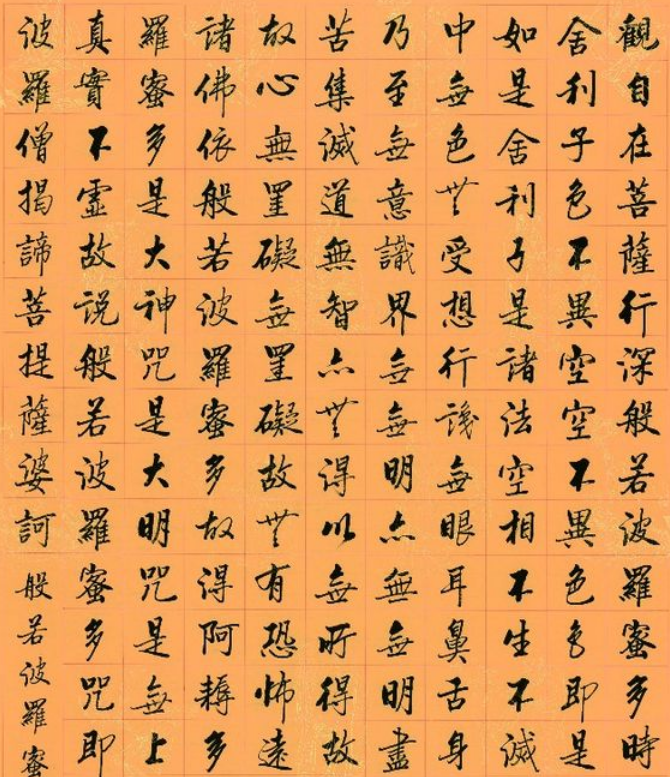 觀自在菩薩行深般若波羅蜜多時
舍利子色不異空空不異色色即是
如是舍利子是諸法空相不生不滅
中無色無受想行識無眼耳鼻舌身
乃至無意識界無無明亦無無明盡
苦集滅道無智亦無得以無所得故
故心無罣礙無罣礙故無有恐怖遠
諸佛依般若波羅蜜多故得阿耨多
羅蜜多是大神咒是大明咒是無上
真實不虛故說般若波羅蜜多咒即
波羅僧揭諦菩提薩婆訶般若波羅蜜